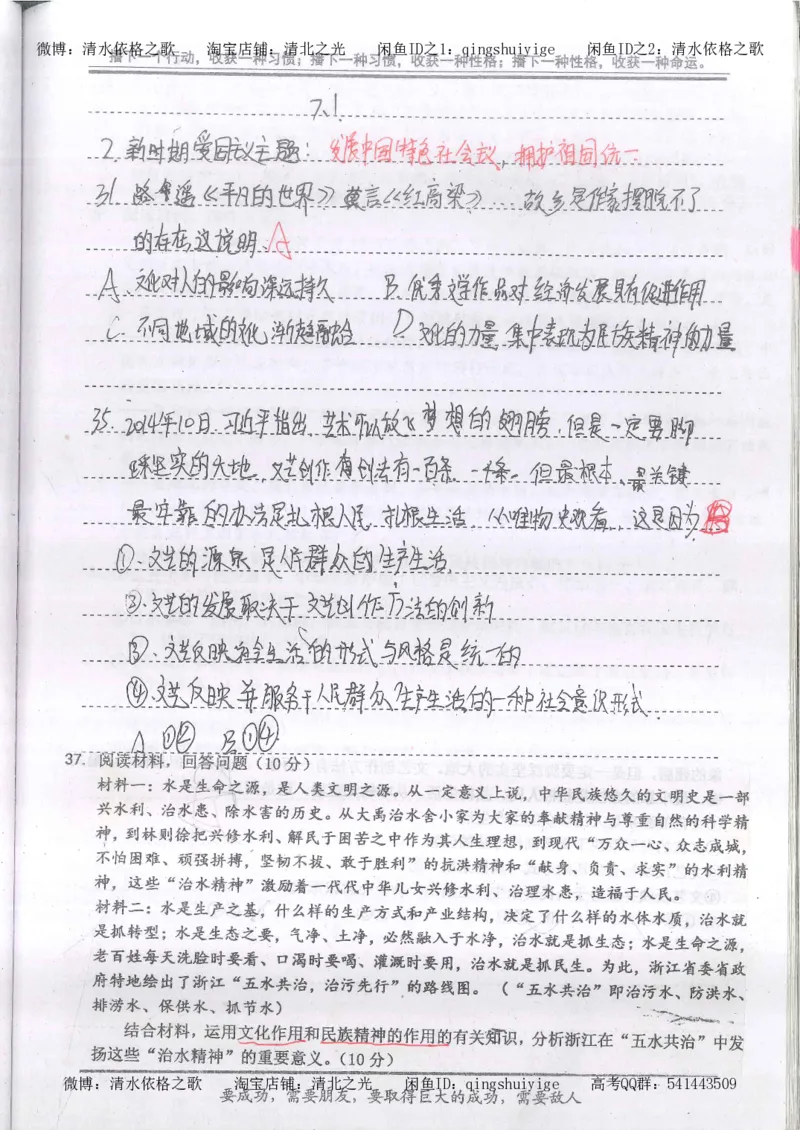 微博：清水依格之歌 淘宝店铺：清北之光 闲鱼ID之1：qingshuiyige 闲鱼ID之2：清水依格之歌
播下一个行动，收获一种习惯；播下一种习惯，收获一种性格；播下一种性格，收获一种命运。
7.1
2.新时期爱国主义主题：发展中国特色社会义、拥护祖国统一
31. 路遥《平凡的世界》莫言《红高梁》...故乡是作家摆脱不了
的存在，这说明 A
A、文化对人的影响深远持久 B、优秀文学作品对经济发展具有促进作用
C、不同地域的文化渐趋融合 D文化的力量，集中表现为民族精神的力量
35. 2014年10日.习近平指出，艺术可以放飞梦想的翅膀，但是一定要脚
踩坚实的大地，文艺创作有创去有一百条，一千条，但最根本、最关键
最牢靠的办法是扎根人民、扎根生活，从唯物史观看，这是因为
①.文艺的源泉是人民群众的生产生活
②.文艺的发展取决于文艺创作方法的创新
③.文艺反映社会生活的形式与风格是统一的
④.文艺反映并服务于人民群众生产生活的一种社会意识形式
A ①② B①④
37. 阅读材料，回答问题（10分）
材料一：水是生命之源，是人类文明之源。从一定意义上说，中华民族悠久的文明史是一部
兴水利、治水患、除水害的历史。从大禹治水舍小家为大家的奉献精神与尊重自然的科学精
神，到林则徐把兴修水利、解民于困苦之中作为其人生理想，到现代“万众一心、众志成城，
不怕困难、顽强拼搏，坚韧不拔、敢于胜利”的抗洪精神和“献身、负责、求实”的水利精
神，这些“治水精神”激励着一代代中华儿女兴修水利、治理水患，造福于人民。
材料二：水是生产之基，什么样的生产方式和产业结构，决定了什么样的水体水质，治水就
是抓转型；水是生态之要，气净、土净，必然融入于水净，治水就是抓生态；水是生命之源，
老百姓每天洗脸时要看、口渴时要喝、灌溉时要用，治水就是抓民生。为此，浙江省委省政
府特地绘出了浙江“五水共治，治污先行”的路线图。（“五水共治”即治污水、防洪水、
排涝水、保供水、抓节水）
结合材料，运用文化作用和民族精神的作用的有关知识，分析浙江在“五水共治”中发
扬这些“治水精神”的重要意义。（10分）
微博：清水依格之歌 淘宝店铺：清北之光 闲鱼ID：qingshuiyige 高考QQ群：541443509
要成功，需要朋友，要取得巨大的成功，需要敌人